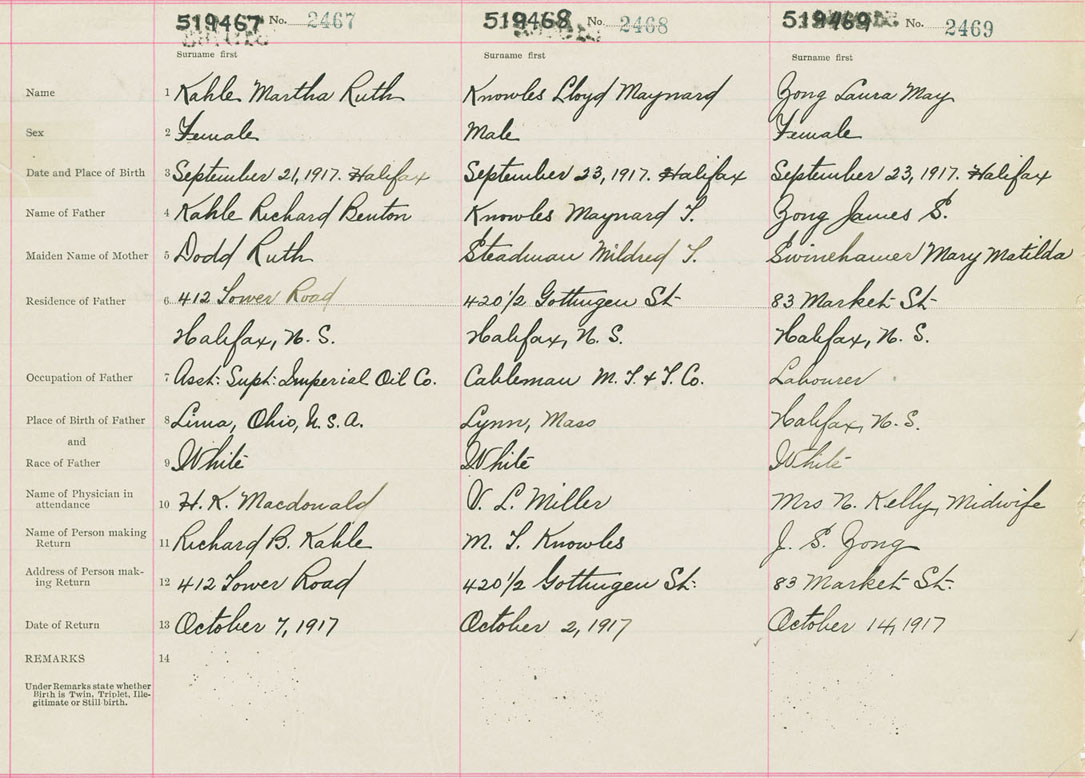 519467 No. 2467 519468 No. 2468 519469 No. 2469
Surname first Surname first Surname first
Name 1 Kahle Martha Ruth Knowles Lloyd Maynard Zong Laura May
Sex 2 Female Male Female
Date and Place of Birth 3 September 21, 1917. Halifax September 23, 1917. Halifax September 23, 1917. Halifax
Name of Father 4 Kahle Richard Benton Knowles Maynard T. Zong James S.
Maiden Name of Mother 5 Dodd Ruth Steadman Mildred T. Swinehamer Mary Matilda
Residence of Father 6 412 Tower Road 420 1/2 Gottingen St. 83 Market St.
Halifax, N. S. Halifax, N. S. Halifax, N. S.
Occupation of Father 7 Asst: Supt: Imperial Oil Co. Cableman M. T. & T. Co. Labourer
Place of Birth of Father 8 Lima, Ohio, U. S. A. Lynn, Mass Halifax, N. S.
and
Race of Father 9 White White White
Name of Physician in
attendance 10 H. K. Macdonald V. L. Miller Mrs N. Kelly, Midwife
Name of Person making
Return 11 Richard B. Kahle M. T. Knowles J. S. Zong
Address of Person mak-
ing Return 12 412 Tower Road 420 1/2 Gottingen St: 83 Market St.
Date of Return 13 October 7, 1917 October 2, 1917 October 14, 1917
REMARKS 14
Under Remarks state whether
Birth is Twin, Triplet, Ille-
gitimate or Still birth.